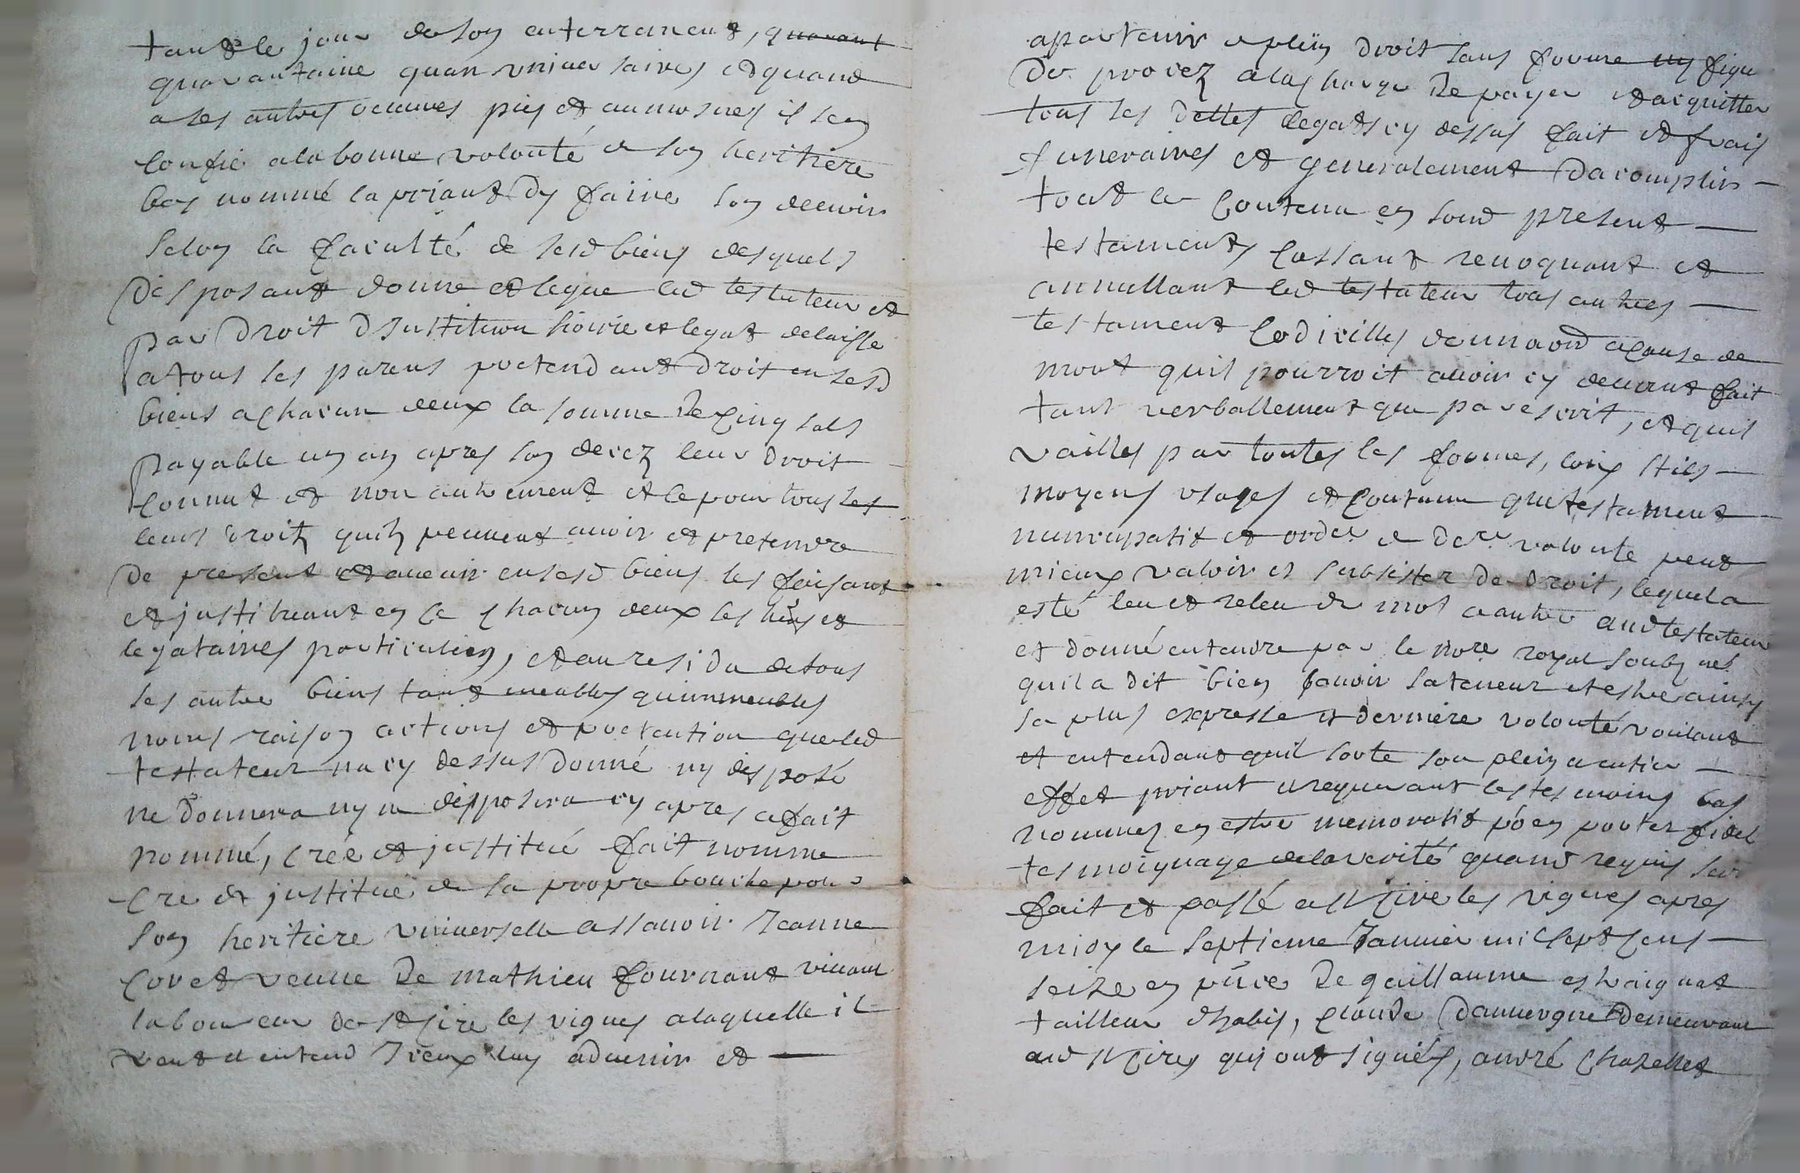 tant le jour de son enterrement, quarant
quarantaine quan universaires et quand
a ses autres oeuvres pies et aumosnes il sen
confie a la bonne volonté de son heritiere
bas nommé la priant dy faire son devoir
selon la faculté de sesd biens desquels
disposant donne et legue led testateur et
par droit dinstitution hoirie et legat delaisse
a tous ses parens pretendant droit en sesd
biens a chacun deux la somme de cinq sols
payable un an apres son decez leur droit
connut et non autrement et ce pour tous les
leurs droitz quilz peuvent avoir et pretendre
de present et avenir en sesd biens les faisant
et justituant en ce chacun deux ses hers et
legataires particuliers, et au residu de tous
ses autre biens tant meubles quimmeubles
noms raison actions et pretention que led
testateur na cy dessus donné ny disposé
ne donnera ny ne disposera cy apres a fait
nommé, creé et justitué fait nomme
cre et justitue de sa propre bouche pour
son heritiere universelle assavoir Jeanne
Coret veuve de mathieu fournant vivant
laboureur de st Cire les vignes a laquelle il
veut et entend Iceux luy advenir et
apartenir de plein droit sans forme ny figu
de procez a la charge de payer et acquitter
tous ses dettes legats cy dessus fait et frais
funeraires et generalement dacomplir
tout le contenu en sond present
testament, cassant revoquant et
annullant led testateur tous autres
testament codicilles donnaon a cause de
mort quil pourroit avoir cy devant fait
tant verballement que par escrit, et quil
vailles par toutes les formes, loix stils
moyens usages et coutume que testament
nuncupatif et ordre de dere volonte peut
mieux valoir et subsister de droit, lequel a
esté leu et releu de mot a autre aud testateur
et donné entendre par le nore royal soubz né
quil a dit bien savoir sa teneur et estre ainsy
sa plus expresse et derniere volonté voulant
et entendant quil sorte son plein et entier
effet priant et requerant les tesmoins bas
nommez en estre memoratif pr en porter fidel
tesmoignage de la verité quand requis ser
fait et passé a st Cire les vignes apres
midy le septieme Janvier mil sept cens
seize en prnce de guillaume eshaignat
tailleur dhabis, claude dauvergne demeurant
aud st Cire, qui ont signés, andré Chazellet